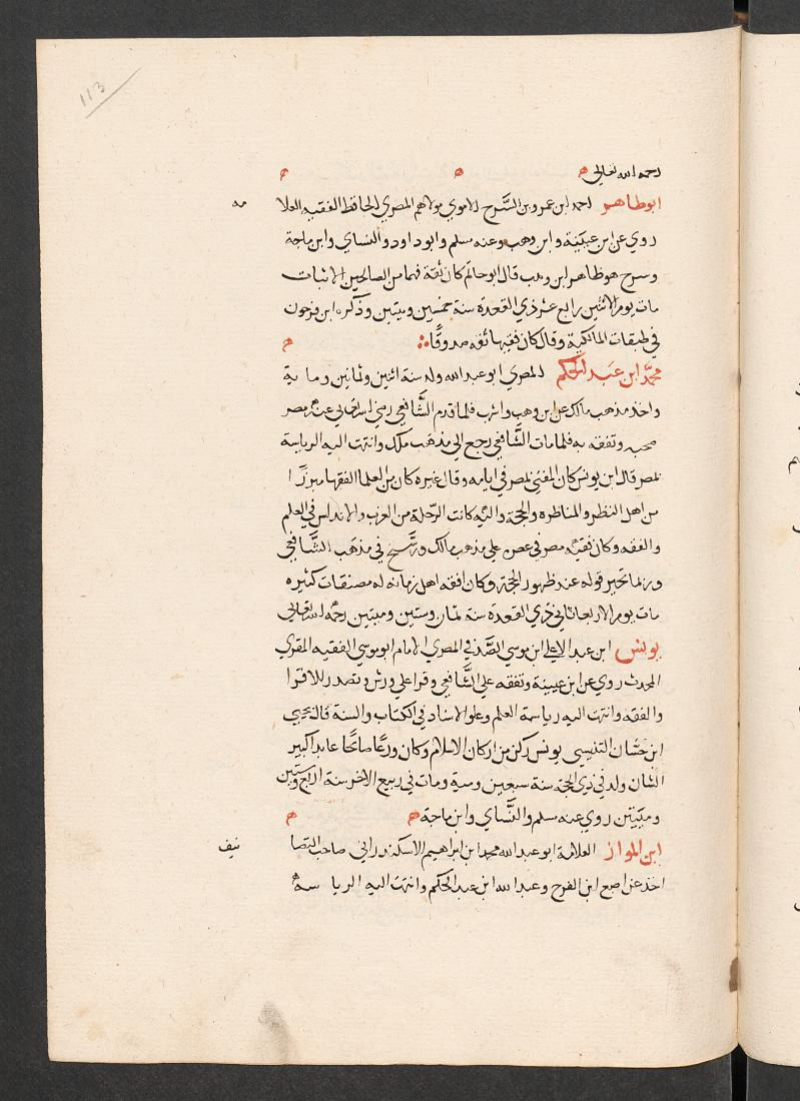 113
رحمه الله تعالى م م م
ابوطاهر احمد ابن عمرو بن السَّرح الاموي مولاهم المصري الحافظ الفقيه العلا مه
روي عن ابن عيينة وابن وهب وعنه مسلم وابوداود والنساي وابن ماجة
وسرح هو طاهر ابن وهب قال ابوحاتم كان ثقة فهما من الصالحين الاثبات
مات يوم الاثنين رابع عشر ذي القعدة سنة خمسين وميتين وذكره ابن فرحون
في طبقات المالكية وقال كان فقيها ثقه صدوقًا م
محمّد ابن عبد الحكم المصري ابوعبد الله ولد سنة اثنين وثمانين وماية
واخذ مذهب مالك عن ابن وهب واشهب فلما قدم الشَّافعي رضي الله تعالي عنه مصر
صحبه وتفقه به فلما مات الشَّافعي رجع الي مذهب ملك وانتهت اليه الرياسة
بمصر قال ابن يونس كان المفتي بمصر في ايامه وقال غيره كان من العلما الفقها مبرزًا
من اهل النظر والمناظره والحجة واليه كانت الرّحلة من الغرب والاندلس في العلم
والفقه وكان فقيه مصر في عصره علي مذهب مالك ورسَّخ في مذهب الشَّافعي
وربما تخير قوله عند ظهور الحجة وكان افقه اهل زمانه له مصنفات كثيره
مات يوم الاربعا ثاني ذي القعدة سنة ثمان وستين وميتين رحمه الله تعالي
يونس ابن عبد الاعلي ابن موسي الصَّدفي المصري الامام ابوموسي الفقيه المقري
المحدث روي عن ابن عيينة وتفقه علي الشَّافعي وقرا علي ورش وتصدر للاقرا
والفقه وانتهت اليه رياسة العلم وعلو الاسناد في الكتاب والسنة قال يحيي
ابن حسّان التنيسي يونس ركن من اركان الاسلام وكان ورعًا صالحًا عابدا كبير
الشان ولد في ذي الحجة سنة سبعين وميه ومات في ربيع الاخر سنة اربع وستين
وميتين روي عنه مسلم والنَّساي وابن ماجة م م
ابن المواز العلامة ابوعبد الله محمد ابن ابراهيم الاسكندراني صاحب التصا نيف
اخذ عن اصبغ ابن الفرج وعبد الله ابن عبد الحكم وانتهت اليه الريا سة